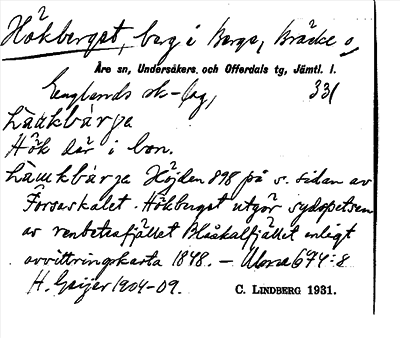 Hökberget, berg i Berge, Bräcke o,
Åre sn, Undersåkers och Offerdals tg, Jämtl. l.
Englands sk-lag, 331
Hök där i bon.
Höjden 898 på s. sidan av
Forsaskalet. Hökberget utgör sydspetsen
av renbetesfjället Blåskalfjället enligt
avvittringskarta 1848. – 674:8
H. Geijer 1904-09. C. LINDBERG 1931.